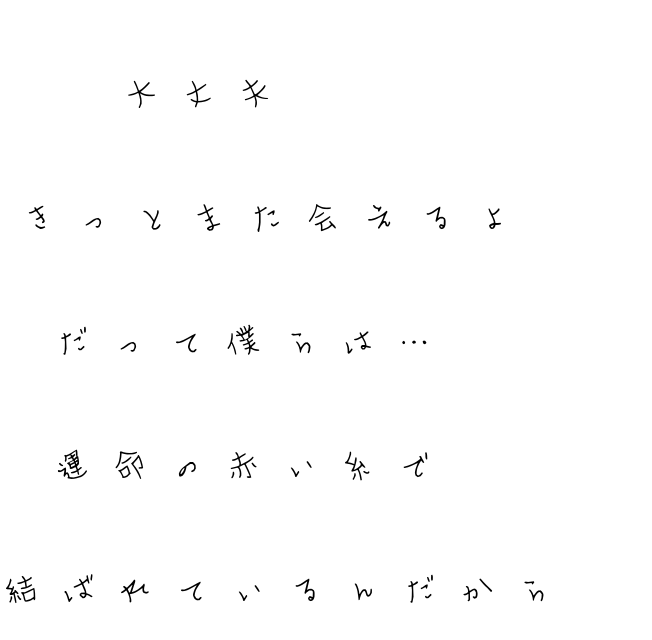 大丈夫
きっとまた会えるよ
だって僕らは…
運命の赤い糸で
結ばれているんだから